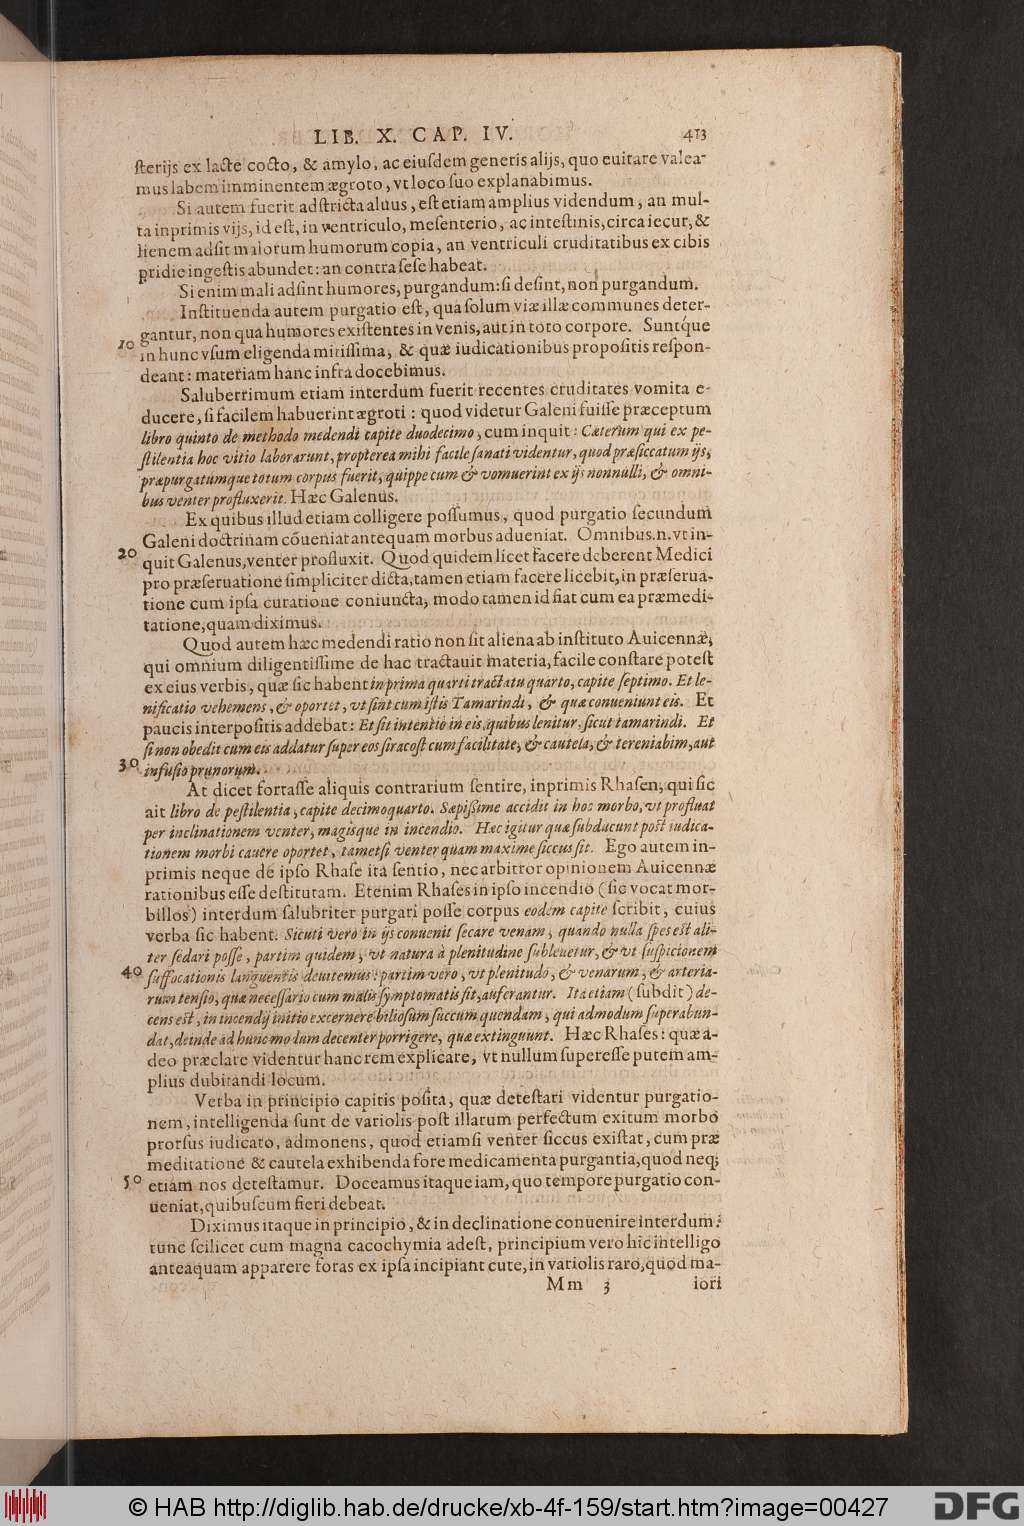 LIB. X. CAP. IV. 413
ſterijs ex lacte cocto, & amylo, ac eiuſdem generis alijs, quo euitare valea-
mus labem imminentem ægroto, vt loco ſuo explanabimus.
Si autem fuerit adſtricta aluus, eſt etiam amplius videndum, an mul-
ta inprimis vijs, id eſt, in ventriculo, meſenterio, ac inteſtinis, circa iecur, &
lienem adſit malorum humorum copia, an ventriculi cruditatibus ex cibis
pridie ingeſtis abundet: an contra ſeſe habeat.
Si enim mali adſint humores, purgandum: ſi deſint, non purgandum.
Inſtituenda autem purgatio eſt, qua ſolum viæ illæ communes deter-
gantur, non qua humores exiſtentes in venis, aut in toto corpore. Suntq́ue
10 in hunc vſum eligenda mitiſſima, & quæ iudicationibus propoſitis reſpon-
deant: materiam hanc infra docebimus.
Saluberrimum etiam interdum fuerit recentes cruditates vomita e-
ducere, ſi facilem habuerint ægroti: quod videtur Galeni fuiſſe præceptum
libro quinto de methodo medendi capite duodecimo, cum inquit: Cæterum qui ex pe-
ſtilentia hoc vitio laborarunt, propterea mihi facile ſanati videntur, quod præſiccatum ijs,
præpurgatumque totum corpus fuerit, quippe cum & vomuerint ex ijs nonnulli, & omni-
bus venter profluxerit. Hæc Galenus.
Ex quibus illud etiam colligere poſſumus, quod purgatio ſecundum
Galeni doctrinam cōueniat antequam morbus adueniat. Omnibus.n.vt in-
20 quit Galenus, venter profluxit. Quod quidem licet facere deberent Medici
pro præſeruatione ſimpliciter dicta, tamen etiam facere licebit, in præſerua-
tione cum ipſa curatione coniuncta, modo tamen id fiat cum ea præmedi-
tatione, quam diximus.
Quod autem hæc medendi ratio non ſit aliena ab inſtituto Auicennæ,
qui omnium diligentiſſime de hac tractauit materia, facile conſtare poteſt
ex eius verbis, quæ ſic habent in prima quarti tractatu quarto, capite ſeptimo. Et le-
nificatio vehemens, & oportet, vt ſint cum iſtis Tamarindi, & quæ conueniunt eis. Et
paucis interpoſitis addebat: Et ſit intentio in eis, quibus lenitur, ſicut tamarindi. Et
ſi non obedit cum eis addatur ſuper eos ſiracoſt cum facilitate, & cautela, & tereniabim, aut
30 infuſio prunorum.
At dicet fortaſſe aliquis contrarium ſentire, inprimis Rhaſen, qui ſic
ait libro de peſtilentia, capite decimoquarto. Sæpißime accidit in hoc morbo, vt profluat
per inclinationem venter, magisque in incendio. Hæc igitur quæ ſubducunt poſt iudica-
tionem morbi cauere oportet, tametſi venter quam maxime ſiccus ſit. Ego autem in-
primis neque de ipſo Rhaſe ita ſentio, nec arbitror opinionem Auicennæ
rationibus eſſe deſtitutam. Etenim Rhaſes in ipſo incendio (ſic vocat mor-
billos) interdum ſalubriter purgari poſſe corpus eodem capite ſcribit, cuius
verba ſic habent. Sicuti vero in ijs conuenit ſecare venam, quando nulla ſpes eſt ali-
ter ſedari poſſe, partim quidem, vt natura à plenitudine ſubleuetur, & vt ſuſpicionem
40 ſuffocationis languentis deuitemus: partim vero, vt plenitudo, & venarum, & arteria-
rum tenſio, quæ neceſſario cum malis ſymptomatis ſit, auferantur. Ita etiam (ſubdit) de-
cens eſt, in incendij initio excernere bilioſum ſuccum quendam, qui admodum ſuperabun-
dat, deinde ad hunc modum decenter porrigere, quæ extinguunt. Hæc Rhaſes: quæ a-
deo præclare videntur hanc rem explicare, vt nullum ſupereſſe putem am-
plius dubitandi locum.
Verba in principio capitis poſita, quæ deteſtari videntur purgatio-
nem, intelligenda ſunt de variolis poſt illarum perfectum exitum morbo
prorſus iudicato, admonens, quod etiamſi venter ſiccus exiſtat, cum præ
meditatione & cautela exhibenda fore medicamenta purgantia, quod neq;
50 etiam nos deteſtamur. Doceamus itaque iam, quo tempore purgatio con-
ueniat, quibuſcum fieri debeat.
Diximus itaque in principio, & in declinatione conuenire interdum:
tunc ſcilicet cum magna cacochymia adeſt, principium vero hic intelligo
anteaquam apparere foras ex ipſa incipiant cute, in variolis raro, quod ma-
Mm 3 iori
© HAB http://diglib.hab.de/drucke/xb-4f-159/start.htm?image=00427 DFG